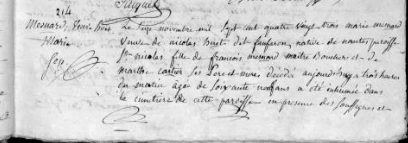 214
Mesnard, Le trois novembre mil sept cent quatre vingt trois marie mesnard
Marie veuve de nicolas huet dit fanfaron, native de nantes paroisse
St nicolas fille de francois mesnard maitre Boucher et de
marthe cartier ses Pere et mere, décédé aujourdhuy a trois heures
du matin agée de soixante ans a été inhumée dans
le cimetiere de cette paroisse en presence des soussignés